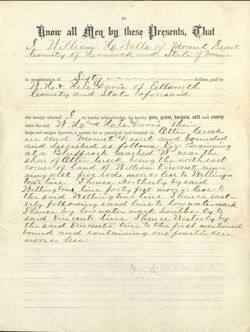 Know all Men by these Presents, That
I William H. Walls of Mount Desert
County of Hancock and State of Maine
in consideration of Sixty dollars, paid by
W. H. & H. E. Davis of Ellsworth
County and State aforesaid
the receipt whereof I do hereby acknowledge, do hereby give, grant, bargain, sell and convey
unto the said W. H. & H. E. Davis their
heirs and assigns forever, a certain lot or parcel of land situated in
in said Mount Desert and bounded
and described as follows viz: Beginning
at a marked W near the
shore of being the northeast
corner of land of William Vincent
west five rods more or less to Welling-
ton's line Thence Northerly by said
Wellingtons line forty feet more or less to
the said Wellingtons line Thence east-
erly following said line to Low water mark
Thence by low water mark Southerly to
said Vincents line Thence Westerly by
the said Vincents line to the first mentioned
bound and containing one fourth acre
more or less.